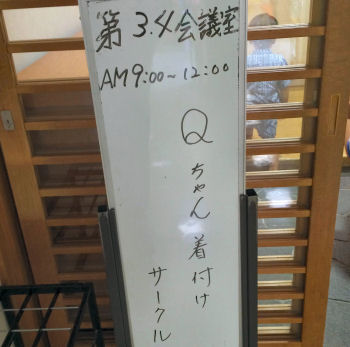 第3.4会議室
AM9:00~12:00
Qちゃん着付け
サークル